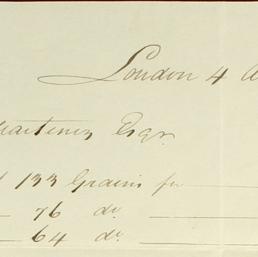 London 4 A
artinez Esqr.
133 Grains for
76 do.
64 do.